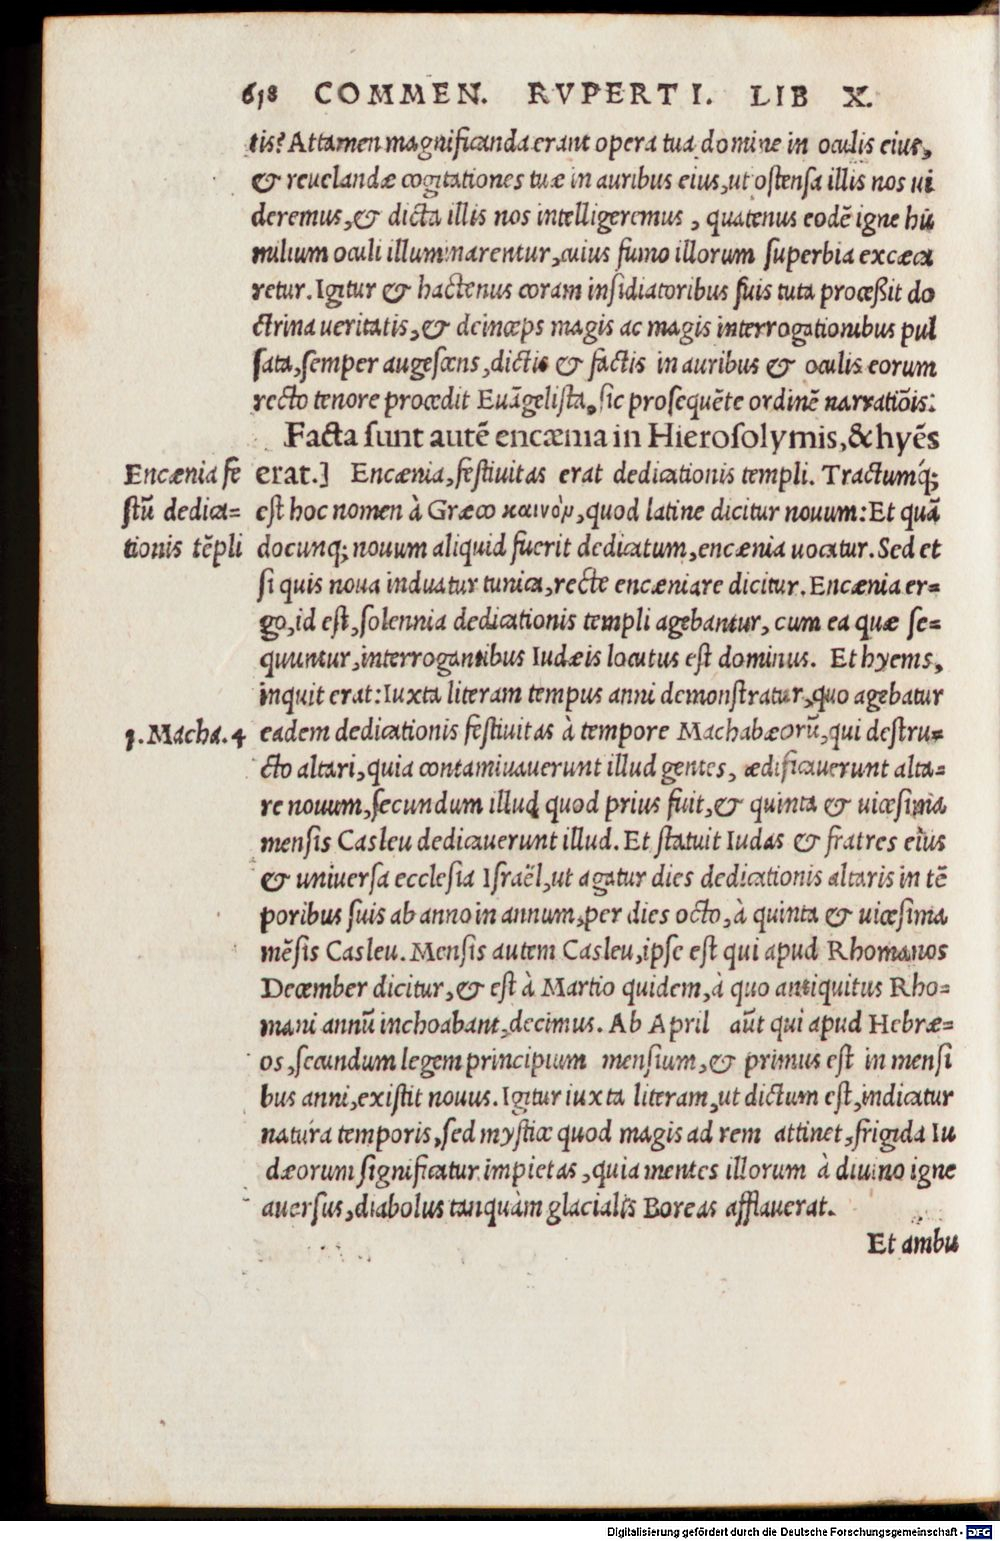 618 COMMEN. RVPERTI. LIB X.
tis? Attamen magnificanda erant opera tua domine in oculis eius,
& reuelandæ cogitationes tuæ in auribus eius, ut ostensa illis nos ui
deremus, & dicta illis nos intelligeremus, quatenus eodē igne hu
milium oculi illuminarentur, cuius fumo illorum superbia excæca
retur. Igitur & hactenus coram insidiatoribus suis tuta proceßit do
ctrina ueritatis, & deinceps magis ac magis interrogationibus pul
sata, semper augescens, dictis & factis in auribus & oculis eorum
recto tenore procedit Euāgelista, sic prosequēte ordinē narratiōis:
Facta sunt autē encænia in Hierosolymis, & hyēs
Encænia fe
stū dedica=
tionis tēpli
erat.] Encænia, festiuitas erat dedicationis templi. Tractumq́;
est hoc nomen à Græco καινὸν, quod latine dicitur nouum: Et quā
docunq; nouum aliquid fuerit dedicatum, encænia uocatur. Sed et
si quis noua induatur tunica, recte encæniare dicitur. Encænia er=
go, id est, solennia dedicationis templi agebantur, cum ea quæ se=
quuntur, interrogantibus Iudæis locutus est dominus. Et hyems,
inquit erat: Iuxta literam tempus anni demonstratur, quo agebatur
1. Macha. 4
eadem dedicationis festiuitas à tempore Machabæorū, qui destru=
cto altari, quia contaminauerunt illud gentes, ædificauerunt alta=
re nouum, secundum illud quod prius fuit, & quinta & uicesima
mensis Casleu dedicauerunt illud. Et statuit Iudas & fratres eius
& uniuersa ecclesia Israël, ut agatur dies dedicationis altaris in tē
poribus suis ab anno in annum, per dies octo, à quinta & uicesima
mēsis Casleu. Mensis autem Casleu, ipse est qui apud Rhomanos
December dicitur, & est à Martio quidem, à quo antiquitus Rho=
mani annū inchoabant, decimus. Ab April aūt qui apud Hebræ=
os, secundum legem principium mensium, & primus est in mensi
bus anni, existit nouus. Igitur iuxta literam, ut dictum est, indicatur
natura temporis, sed mystice quod magis ad rem attinet, frigida Iu
dæorum significatur impietas, quia mentes illorum à diuino igne
auersus, diabolus tanquàm glacialis Boreas afflauerat.
Et ambu
Digitalisierung gefördert durch die Deutsche Forschungsgemeinschaft - DFG